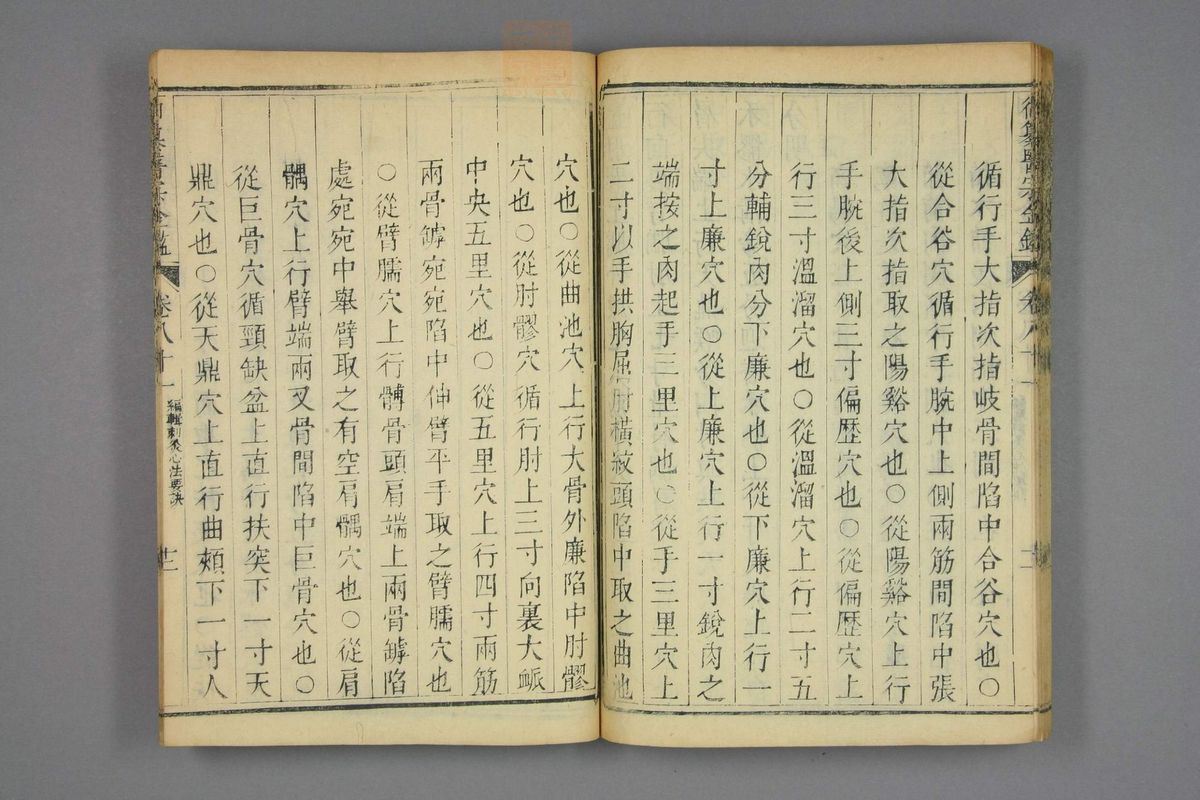 循行手大指次指岐骨間陷中合谷穴也○
從合谷穴循行手腕中上側兩筋間陷中張
大指次指取之陽谿穴也○從陽谿穴上行
手腕後上側三寸偏歷穴也○從偏歷穴上
行三寸溫溜穴也○從溫溜穴上行二寸五
分輔銳肉分下廉穴也○從下廉穴上行一
寸上廉穴也○從上廉穴上行一寸銳肉之
端按之肉起手三里穴也○從手三里穴上
二寸以手拱胸屈肘橫紋頭陷中取之曲池
穴也○從曲池穴上行大骨外廉陷中肘髎
穴也○從肘髎穴循行肘上三寸向裏大脈
中央五里穴也○從五里穴上行四寸兩筋
兩骨罅宛宛陷中伸臂平手取之臂臑穴也
○從臂臑穴上行髆骨頭肩端上兩骨罅陷
處宛宛中舉臂取之有空肩髃穴也○從肩
髃穴上行臂端兩叉骨間陷中巨骨穴也○
從巨骨穴循頸缺盆上直行扶突下一寸天
鼎穴也○從天鼎穴上直行曲頰下一寸人
卷八十一
編輯刺灸心法要訣